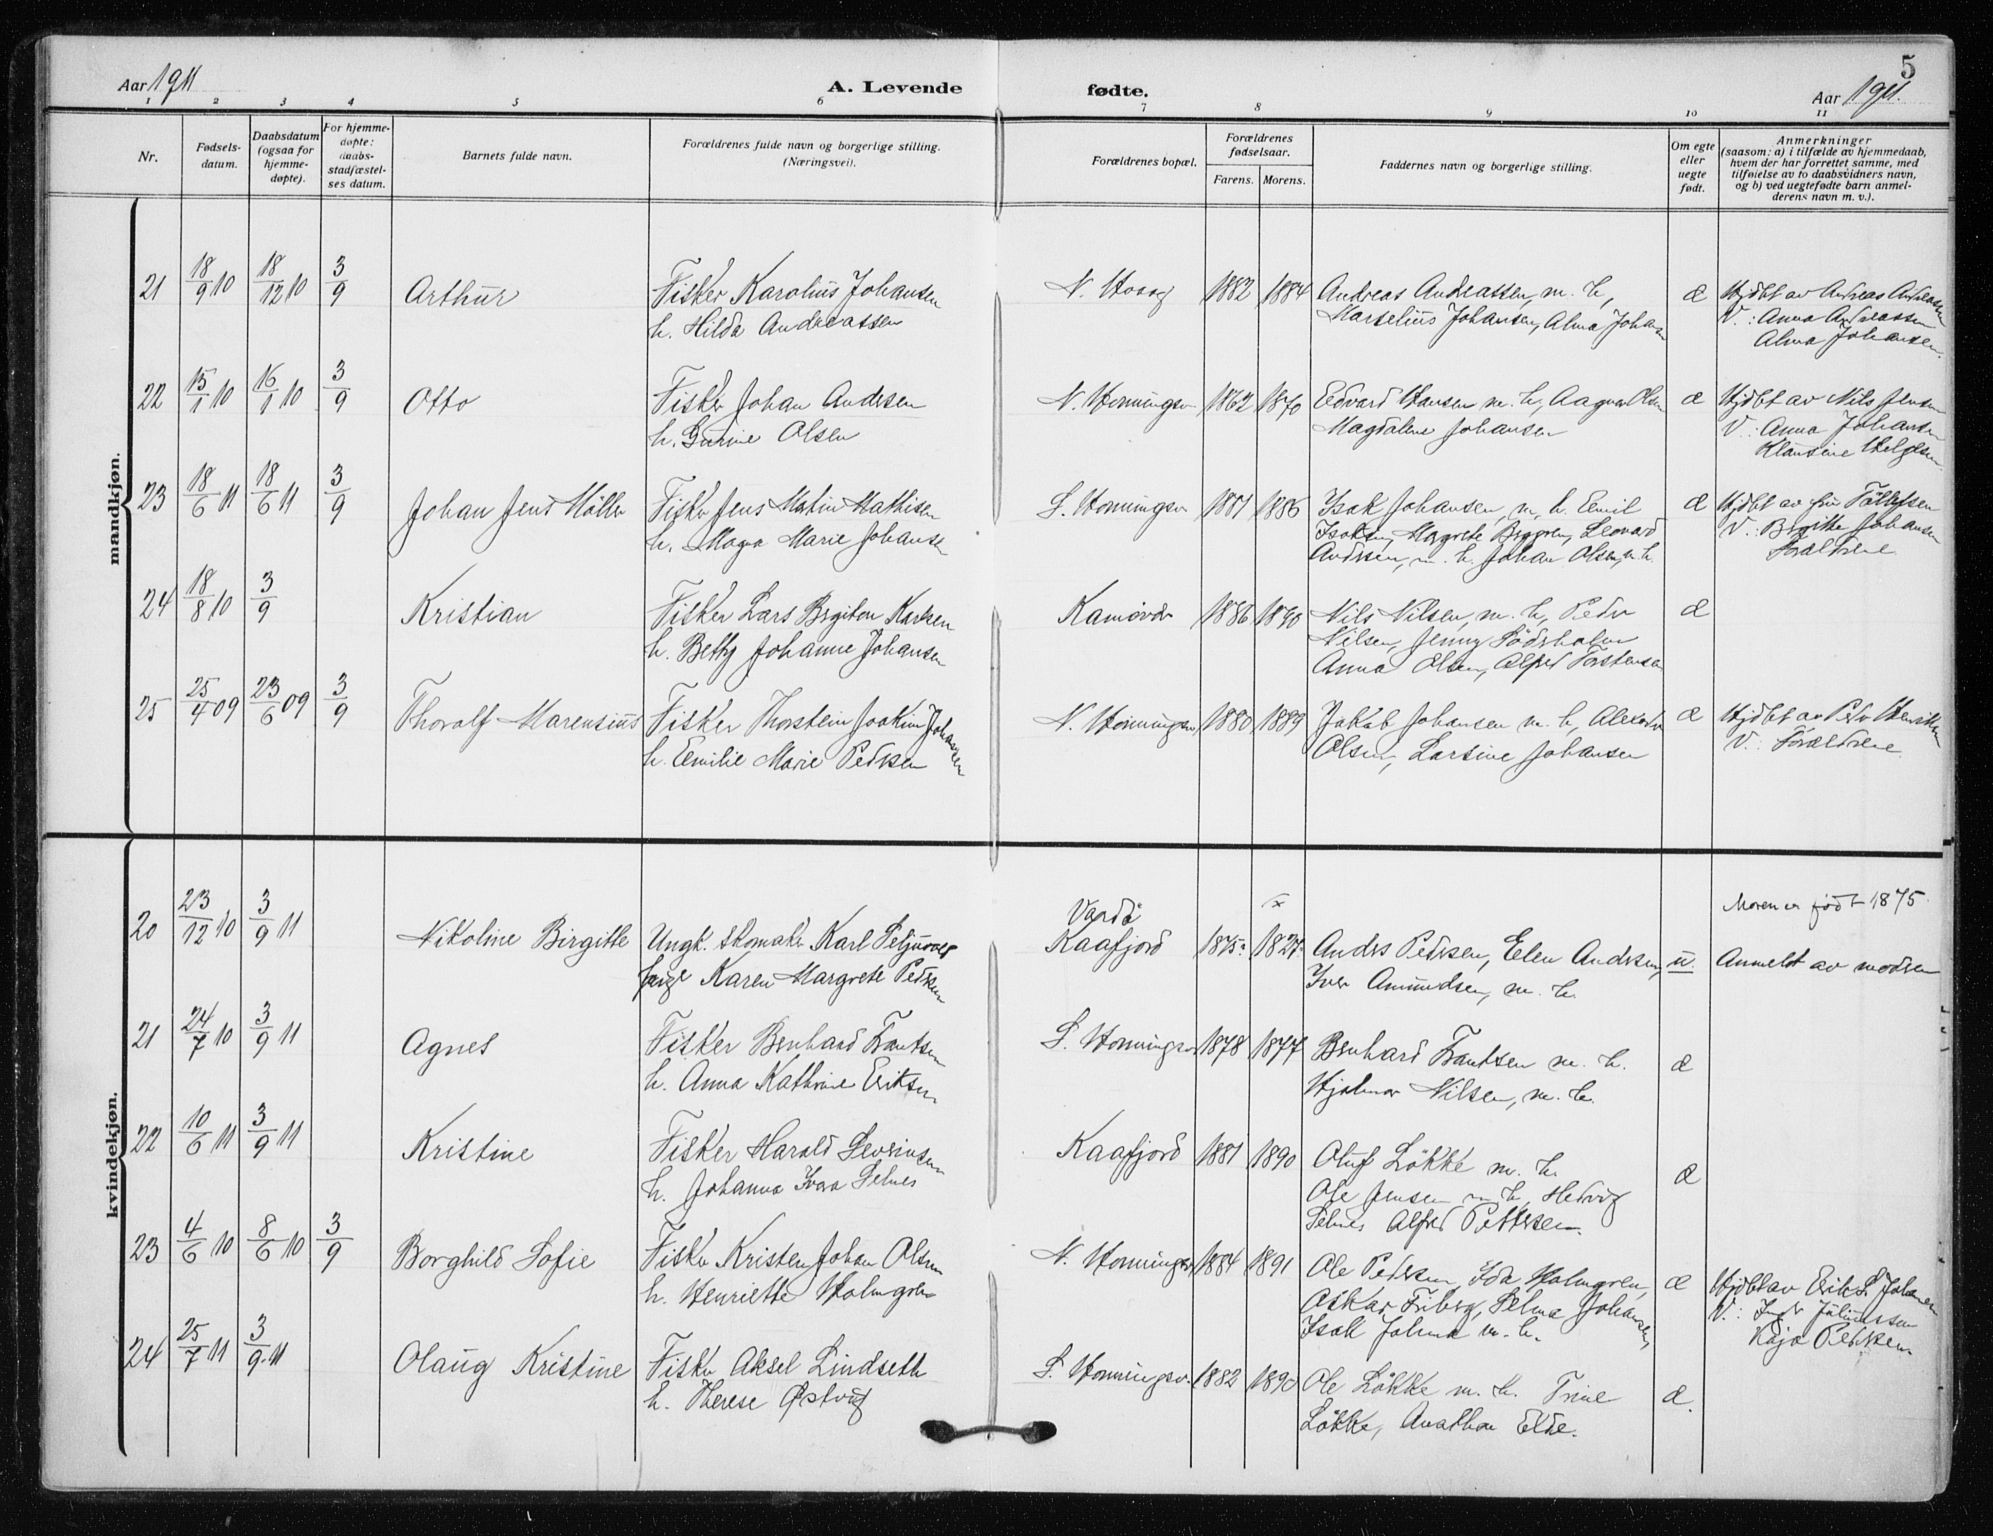 5
Aar 1911
A. Levende fødte.
Aar 1911.
1 2 3 4 5 6 7 8 9 10 11
Nr.
Fødsels-
datum.
Daabsdatum
(ogsaa for
hjemme-
døpte).
For hjemme-
døpte:
daabs-
stadfæstel-
ses datum.
Barnets fulde navn.
Forældrenes fulde navn og borgerlige stilling.
(Næringsvei).
Forældrenes bopæl.
Forældrenes
fødselsaar.
Farens. Morens.
Faddernes navn og borgerlige stilling.
Om egte
eller
uegte
født.
Anmerkninger
(saasom: a) i tilfælde av hjemmedaab,
hvem der har forrettet samme, med
tilføielse av to daabsvidners navn,
og b) ved uegtefødte barn anmel-
derens navn m. v.).
mandkjøn.
21 18/9 10 18/12 10 3/9 Arthur Fisker Karolius Johansen N. Vaag 1882 1884 Andreas Andreassen, m. h, æ Hjdbt av Andreas Andreassen
h. Hilda Andreassen Marselius Johansen, Alma Johansen V.: Anna Andreassen
Alma Johansen.
22 15/1 10 16/1 10 3/9 Otto Fisker Johan Andersen N. Honningsv 1862 1870 Edvard Hansen m. h, Aagnes Olsen æ Hjdbt av Nils Jensen
h. Gurine Olsen Magdalene Johansen V.: Anna Johansen
Klausine Helgesen
23 18/6 11 18/6 11 3/9 Johan Jens Möller Fisker Jens Martin Mathisen S. Honningsv 1881 1886 Isak Johansen, m. h. Emil æ Hjdbt av fru Tollefsen
h. Magna Marie Johansen Isaksen, Margrete Berggren, Leonard V.: Birgitte Johansen
Andersen, m. h. Johan Olsen, m. h. Forældrene
24 18/8 10 3/9 Kristian Fisker Lars Birgiton Karlsen Kamøvær 1886 1890 Nils Nilsen, m. h, Peder æ
h. Betty Johanne Johansen Nilsen, Jenny Söderholm
Anna Olsen, Alfred Torstensen
25 25/4 09 23/6 09 3/9 Thoralf Marensius Fisker Thorstein Joakim Johansen N. Honningsv 1880 1889 Jakob Johansen m. h, æ Hjdbt av Peder Henriksen
h. Emilie Marie Pedersen Olsen, Larsine Johansen V.: Forældrene
kvindekjøn.
Vardö x Moren er født 1875.
20 23/12 10 3/9 11 Nikoline Birgitte Ungk. skomaker Karl Kaafjord 1875 Anders Pedersen, Elen Andersen, u. Anmeldt av modren
pige Karen Margrete Pedersen Iver Amundsen, m. h.
21 24/7 10 3/9 11 Agnes Fisker Bernhard Frantsen S. Honningsv 1878 1877 Bernhard Frantsen m. h. æ
h. Anna Kathrine Eriksen Hjalmar Nilsen, m. h.
22 10/6 11 3/9 11 Kristine Fisker Harald Severinsen Kaafjord 1881 1890 Oluf Lökke m. h. æ
h. Johanna Ivara Selnes Ole Jensen m. h, Hedvig
Selnes Alfred Pettersen.
23 4/6 10 8/6 10 3/9 Borghild Sofie Fisker Kristen Johan Olsen N. Honningsv 1884 1891 Ole Pedersen, Ida Holmgren, æ Hjdbt av Erik S. Johansen
h. Henriette Holmgren Askar Friberg, Selma Johansen, V.:
Isak m. h. Kaja Pedersen
24 25/7 11 3/9 11 Olaug Kristine Fisker Aksel Lindseth S. Honningsv. 1882 1890 Ole Lökke m. h. Trine æ.
h. Therese Østvig Lökke, Anathon Elde.